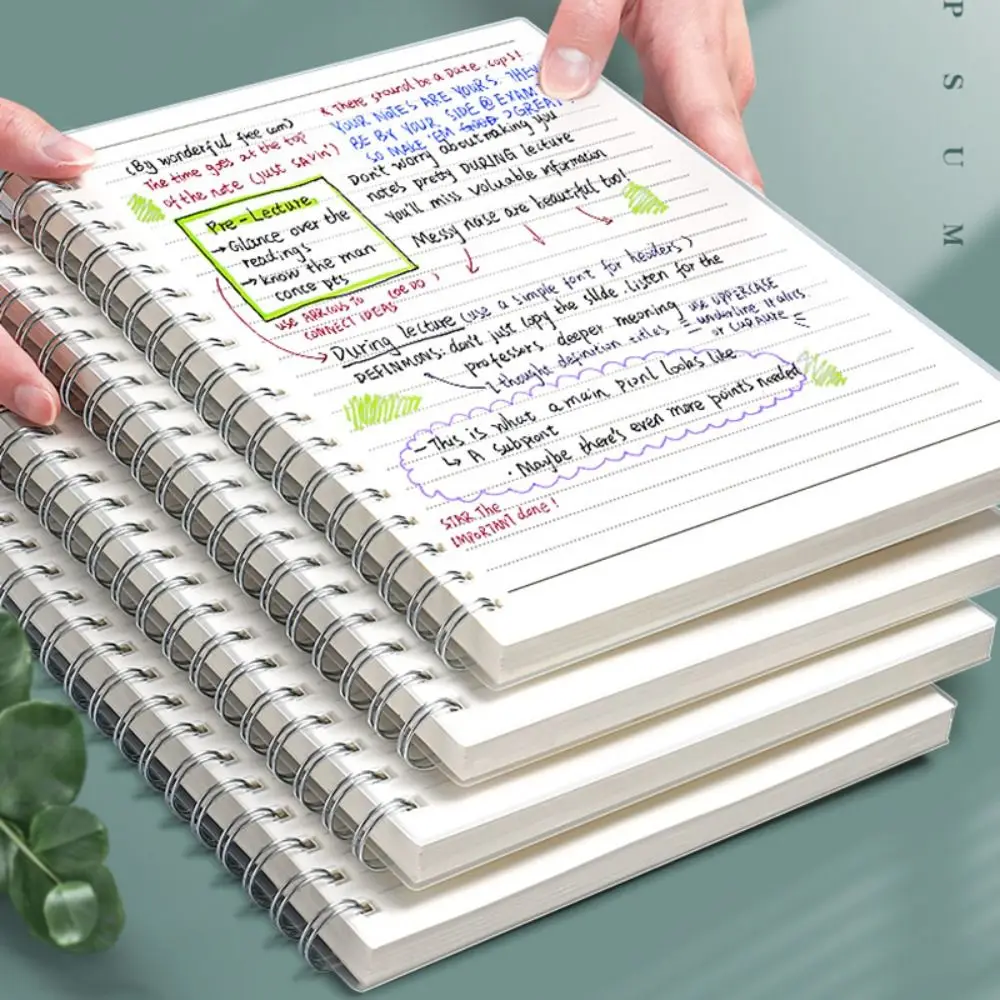 * There should be a Date, oops!
(By wonderful free cam)
The time goes at the top
of the note (just sayin')
YOUR NOTES ARE YOURS. THEY
BE BY YOUR SIDE @ EXAM
SO MAKE EM GREAT!
Don't worry about making you
notes pretty DURING lecture
You'll miss valuable information
Messy nose are beautiful too!
Pre-Lecture.
→ Glance over the
readings
→ know the man
conce pts
use ARROWS TO
CONNECT IDEAS
During lecture (use a simple font for headers)
DEFINMONS: don't just copy the slide. listen for the
professors deeper meaning
use UPPERCASE
underline italics
or CURAURE
(thought definition titles
- This is what a main Pionl looks like
↳ A subpont
• Maybe there's even more points needed
STAR The
IMPORTANT done!
P S U M